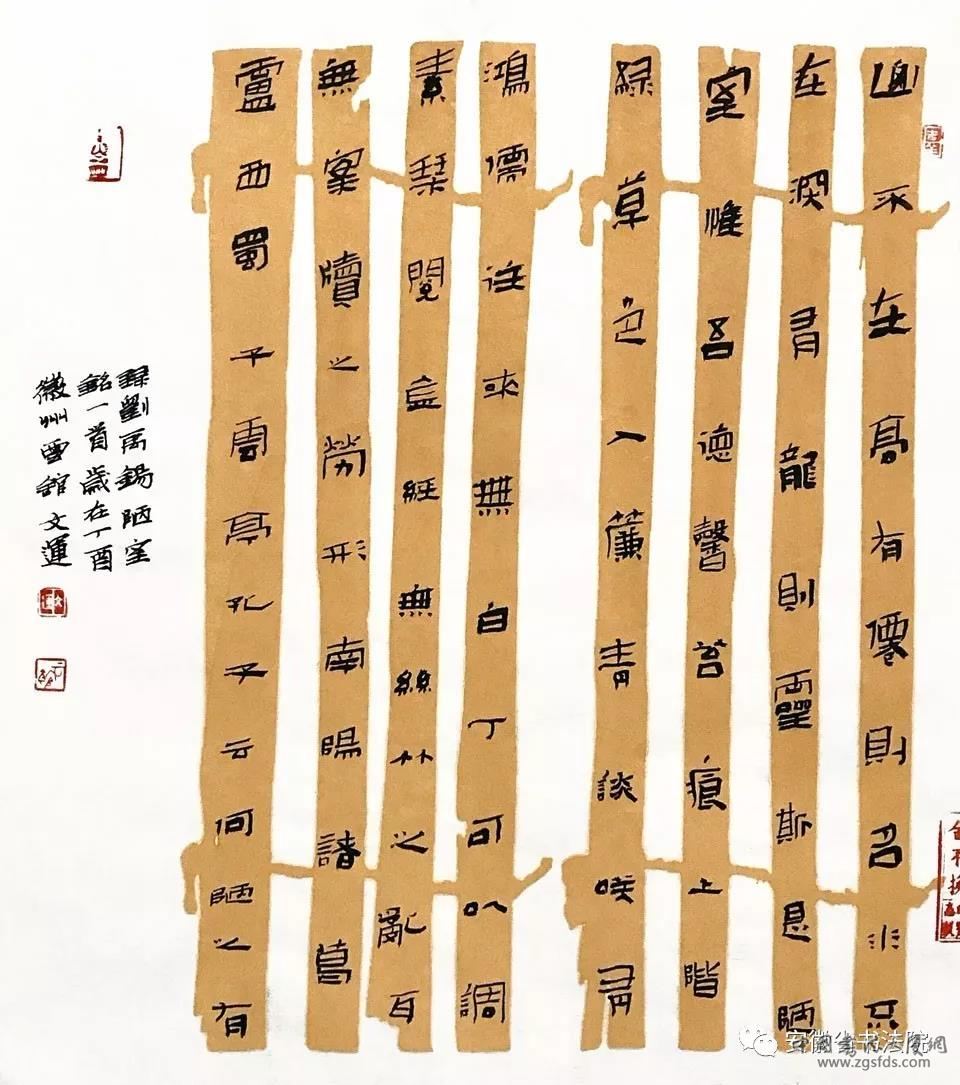 山不在高有僊則名水不
在深有龍則靈斯是陋
室惟吾德馨苔痕上階
綠草色入簾青談笑有
鴻儒往來無白丁可以調
素琴閱金經無絲竹之亂耳
無案牘之勞形南陽諸葛
廬西蜀子雲亭孔子云何陋之有
錄劉禹錫陋室
銘一首歲在丁酉
徽州館文運
安徽省书法院
www.zgsfds.com